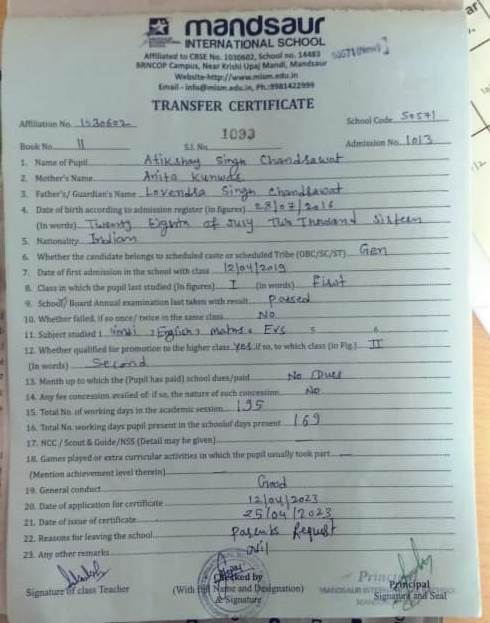 mandsaur
INTERNATIONAL SCHOOL
Affiliated to CBSE No. 1030602, School no. 14483 50571(New)
BRNCOP Campus, Near Krishi Upaj Mandi, Mandsaur
Website-http://www.mism.edu.in
Email - info@mism.edu.in, Ph.:9981422999
TRANSFER CERTIFICATE
Affiliation No. 1030602 School Code 50571
Book No. 11 S.l. No. 1093 Admission No. 1013
1. Name of Pupil Atikshay Singh Chandrawat
2. Mother's Name Anita Kunwar
3. Father's/ Guardian's Name Lovendra Singh Chandrawat
4. Date of birth according to admission register (in figures) 28/07/2016
(In words) Twenty Eighth of July Two Thousand Sixteen
5. Nationality Indian
6. Whether the candidate belongs to scheduled caste or scheduled Tribe (OBC/SC/ST) Gen
7. Date of first admission in the school with class 12/04/2019
8. Class in which the pupil last studied (In figures) I (in words) First
9. School/ Board Annual examination last taken with result Passed
10. Whether failed, if so once/ twice in the same class No
11. Subject studied 1 Hindi 2 English 3 maths 4 Evs 5 6
12. Whether qualified for promotion to the higher class yes if so, to which class (in Fig.) II
(In words) Second
13. Month up to which the (Pupil has paid) school dues/paid No Dues
14. Any fee concession availed of: if so, the nature of such concession No
15. Total No. of working days in the academic session 195
16. Total No. working days pupil present in the school/of days present 169
17. NCC / Scout & Guide/NSS (Detail may be given)
18. Games played or extra curricular activities in which the pupil usually took part
(Mention achievement level therein)
19. General conduct Good
20. Date of application for certificate 12/04/2023
21. Date of issue of certificate 25/04/2023
22. Reasons for leaving the school Parents Request
23. Any other remarks Nil
Signature of class Teacher
Checked by
(With full Name and Designation)
& Signature
Principal
Principal
Signature and Seal